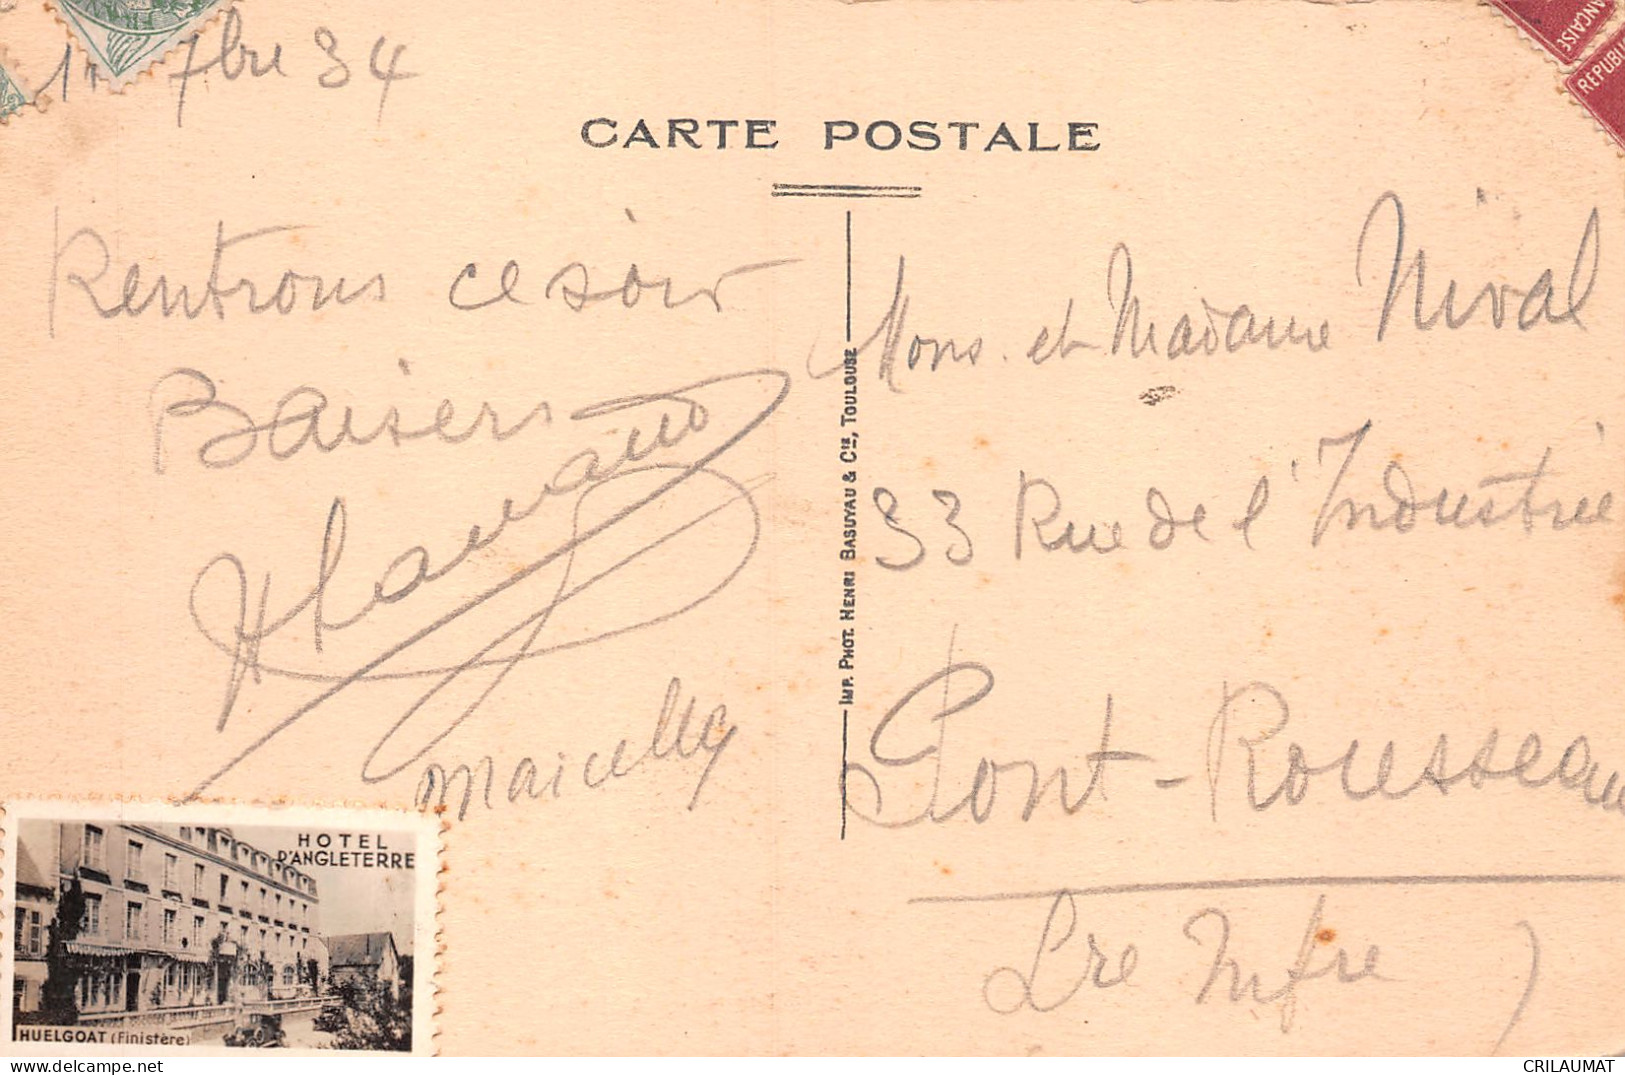 7bre 34
CARTE POSTALE
Rentrons ce soir
Baisers
Marcelle
Mons. et Madame Nival
33 Rue de l'Industrie
Pont-Rousseau
Lre Infre
IMP. PHOT. HENRI BASUYAU & Cie, TOULOUSE
HOTEL
D'ANGLETERRE
HUELGOAT (Finistère)
ANÇAISE
REPUBLI
CRILAUMAT